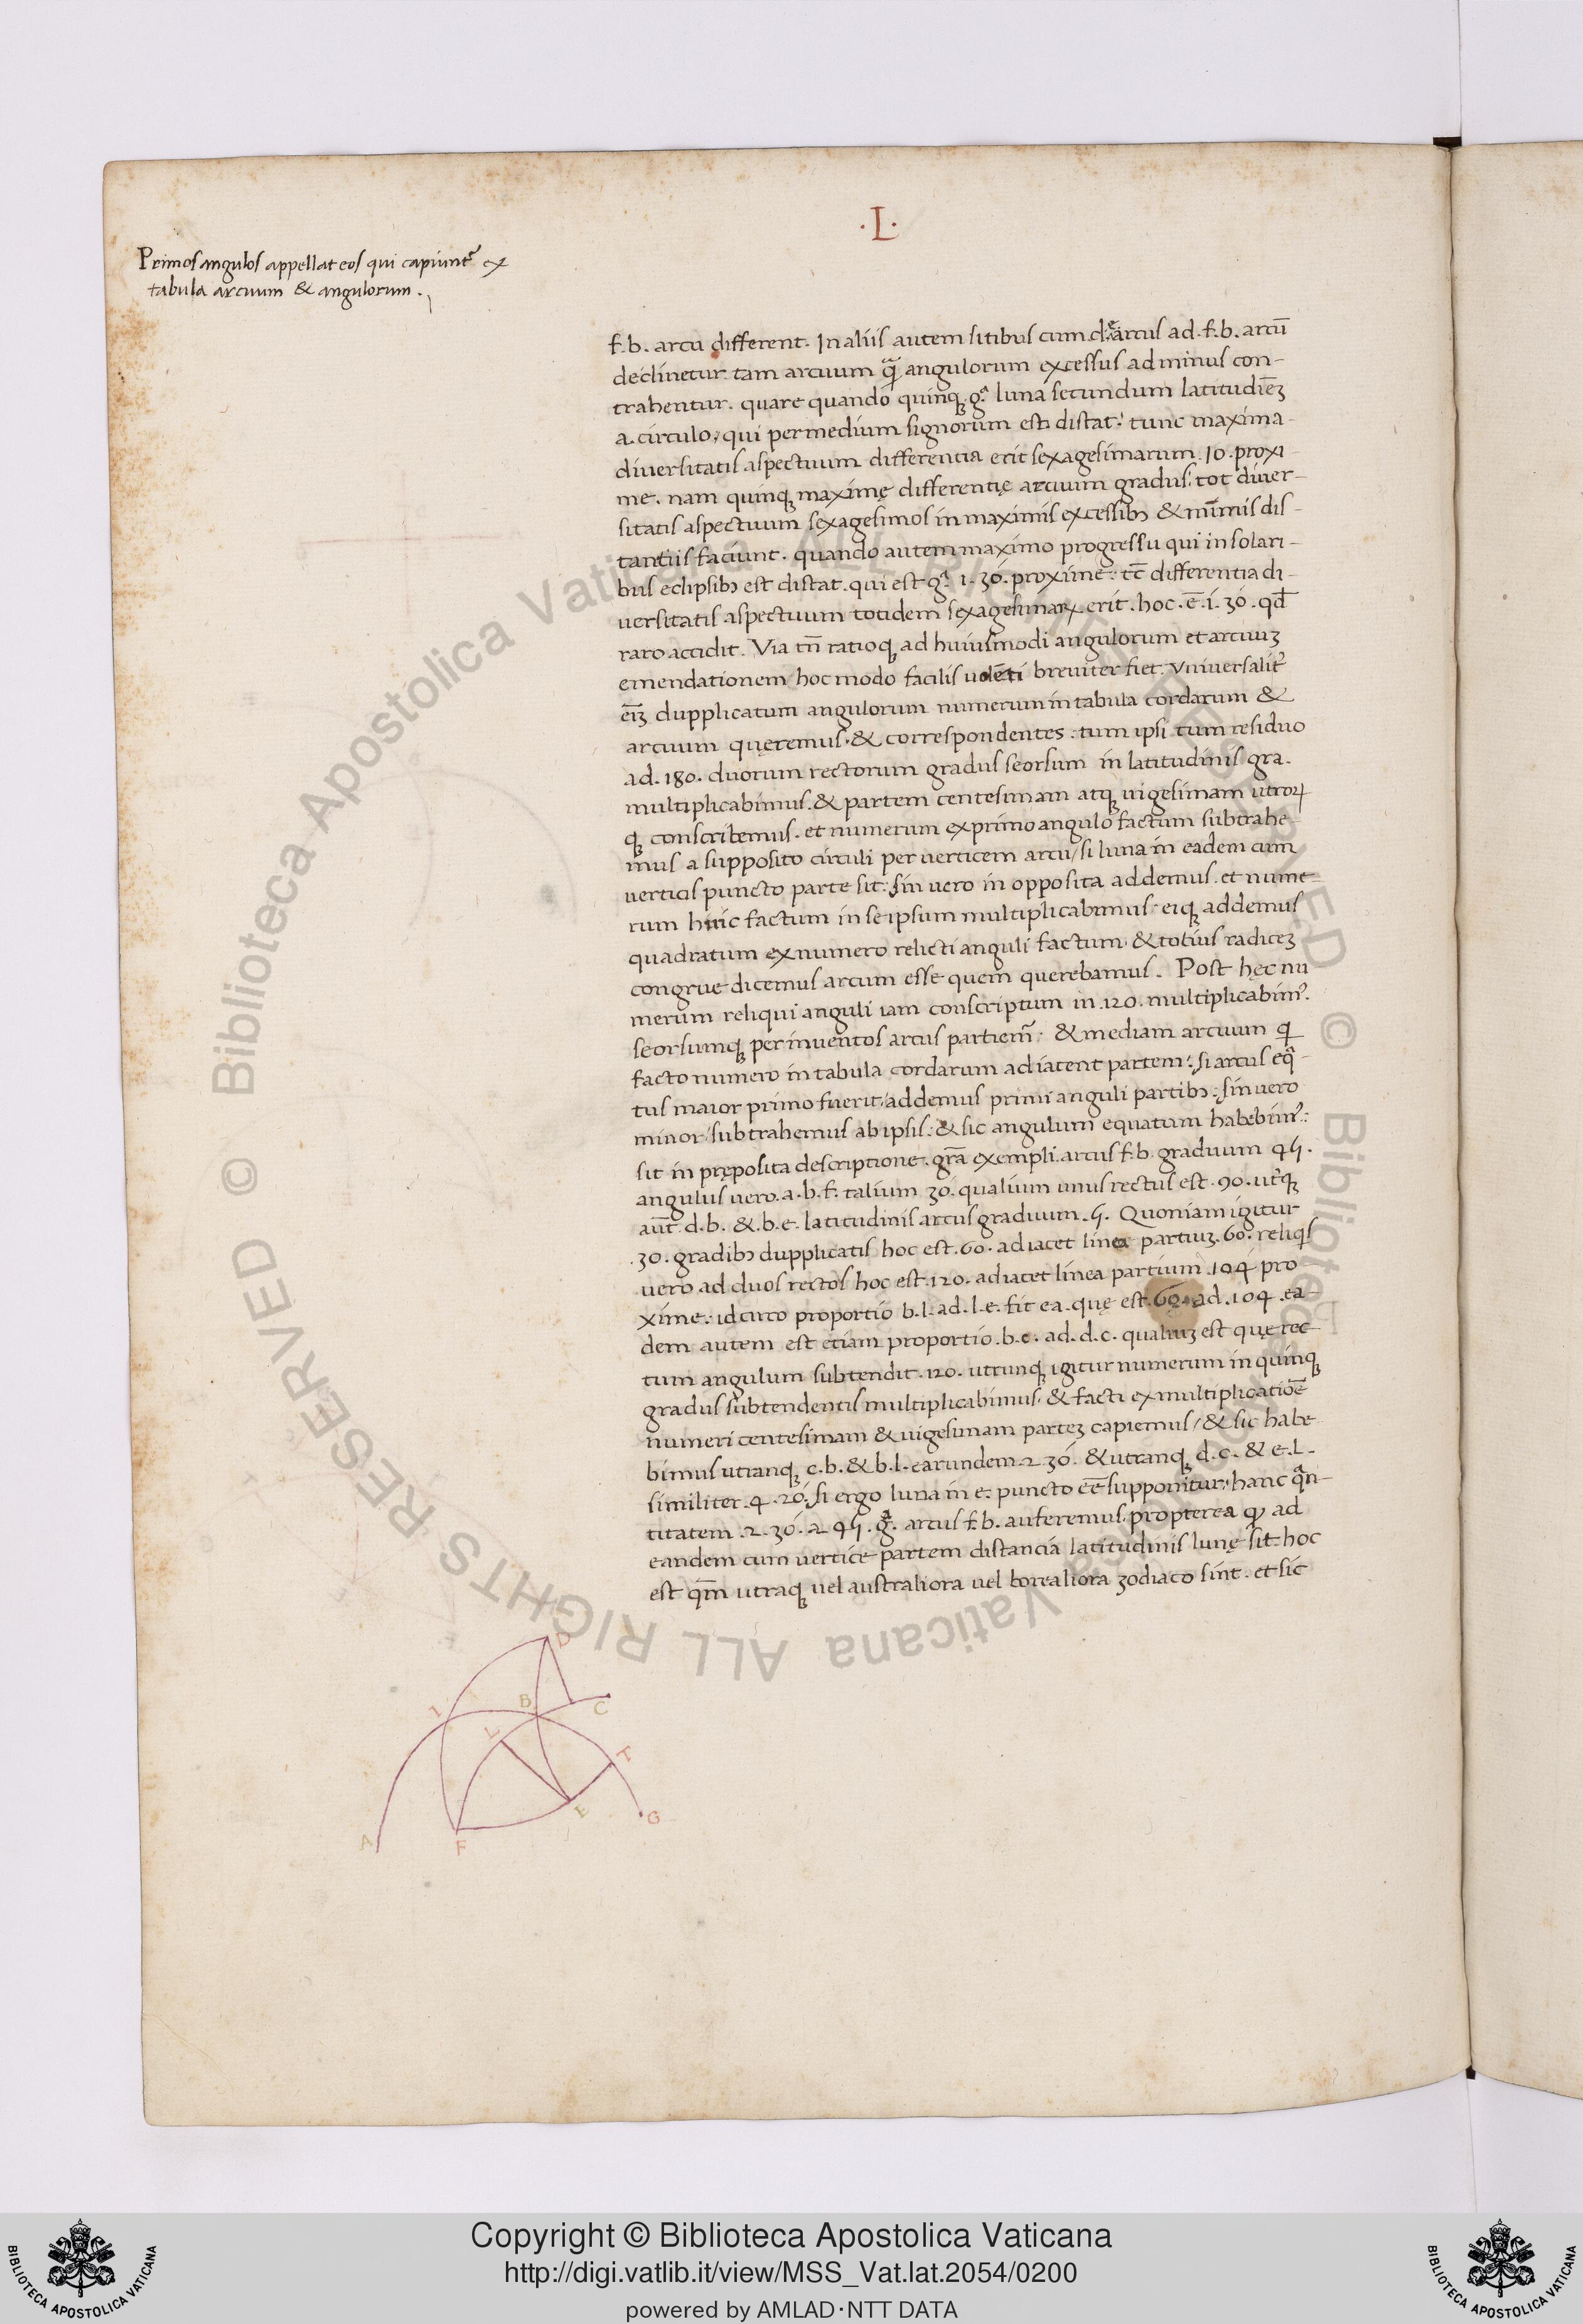 ·L·
Primos angulos appellat eos qui capiunt᷑ ex
tabula arcuum & angulorum.
f.b. arcu different. In aliis autem sitibus cum d.e. arcus ad .f.b. arcū
declinetur tam arcuum q̃ angulorum excessus ad minus con-
trahentur. quare quando quinqꝫ gͣ. luna secundum latitudīeꝫ
a circulo, qui per medium signorum est distat: tunc maxima
diversitatis aspectuum differentia erit sexagesimarum .10. proxi-
me. nam quinqꝫ maximę differentię arcuum gradus: tot diver-
sitatis aspectuum sexagesimos in maximis excessibꝫ & minīmis dis-
tantiis faciunt. quando autem maximo progressu qui in solari-
bus eclipsibꝫ est distat. qui est gͣ. 1. 30. proxime: tc̄ differentia di-
versitatis aspectuum totidem sexagesimaꝝ erit. hoc .ē. i. 30. qd̄
raro accidit. Via tn̄ ratioqꝫ ad huiusmodi angulorum et arcuuꝫ
emendationem hoc modo facilis volēti breviter fiet. Universalit᷑
eīꝫ dupplicatum angulorum numerum in tabula cordarum &
arcuum quęremus. & correspondentes: tum ipsi tum residuo
ad. 180. duorum rectorum gradus seorsum in latitudinis gra.
multiplicabimus. & partem centesimam atqꝫ vigesimam utroꝝ
qꝫ conscribemus. et numerum ex primo angulo factum subtrahe-
mus a supposito circuli per verticem arcu/ si luna in eadem cum
verticis puncto parte sit: sin vero in opposita addemus. et nume-
rum huic factum in se ipsum multiplicabimus: eiqꝫ addemus
quadratum ex numero relicti anguli factum. & totius radiceꝫ
congrue dicemus arcum esse quem querebamus. Post hęc nu
merum reliqui anguli iam conscriptum in .120. multiplicabimꝰ.
seorsumqꝫ per inventos arcus partiem᷑. & mediam arcuum q̄
facto numero in tabula cordarum adiacent partem: si arcus eq̂-
tus maior primo fuerit/ addemus primi anguli partibꝫ: sin vero
minor/ subtrahemus ab ipsis: & sic angulum equatum habebimꝰ:
sit in pręposita descriptione. grā exempli. arcus f.b. graduum 45.
angulus vero .a.b.f. talium 30. qualium unus rectus est .90. utrq̃ꝫ
aūt d.b. &.b.e. latitudinis arcus graduum .5. Quoniam igitur
.30. gradibꝫ dupplicatis hoc est .60. adiacet linea partiuꝫ .60. reliqs
vero ad duos rectos hoc est .120. adiacet linea partium .104 pro-
xime: idcirco proportio b.l. ad .l.e. fit ea. quę est .60. ad .104. ea-
dem autem est etiam proportio .b.c. ad. d.c. qualiuꝫ est quę rec-
tum angulum subtendit .120. utrunqꝫ igitur numerum in quinqꝫ
gradus subtendentis multiplicabimus. & facti ex multiplicatiōe
numeri centesimam & vigesimam parteꝫ capiemus/ & sic habe
bimus utranqꝫ c.b. & b.l. earundem .2 30. & utranqꝫ d.c. & e.l.
similiter .4. 20. si ergo luna in e. puncto eē supponitur: hanc q̃n-
titatem .2. 30. a 45. gͣ. arcus f.b. auferemus. propterea ꝙ ad
eandem cum vertice partem distancia latitudinis lunę sit. hoc
est qm̄ utraqꝫ vel australiora vel borealiora zodiaco sint. et sic
D
I
B
C
L
T
E
G
A
F
© Biblioteca Apostolica Vaticana ALL RIGHTS RESERVED © Biblioteca Apostolica Vaticana ALL RIGHTS RESERVED
BIBLIOTECA APOSTOLICA VATICANA
Copyright © Biblioteca Apostolica Vaticana
http://digi.vatlib.it/view/MSS_Vat.lat.2054/0200
powered by AMLAD·NTT DATA
BIBLIOTECA APOSTOLICA VATICANA